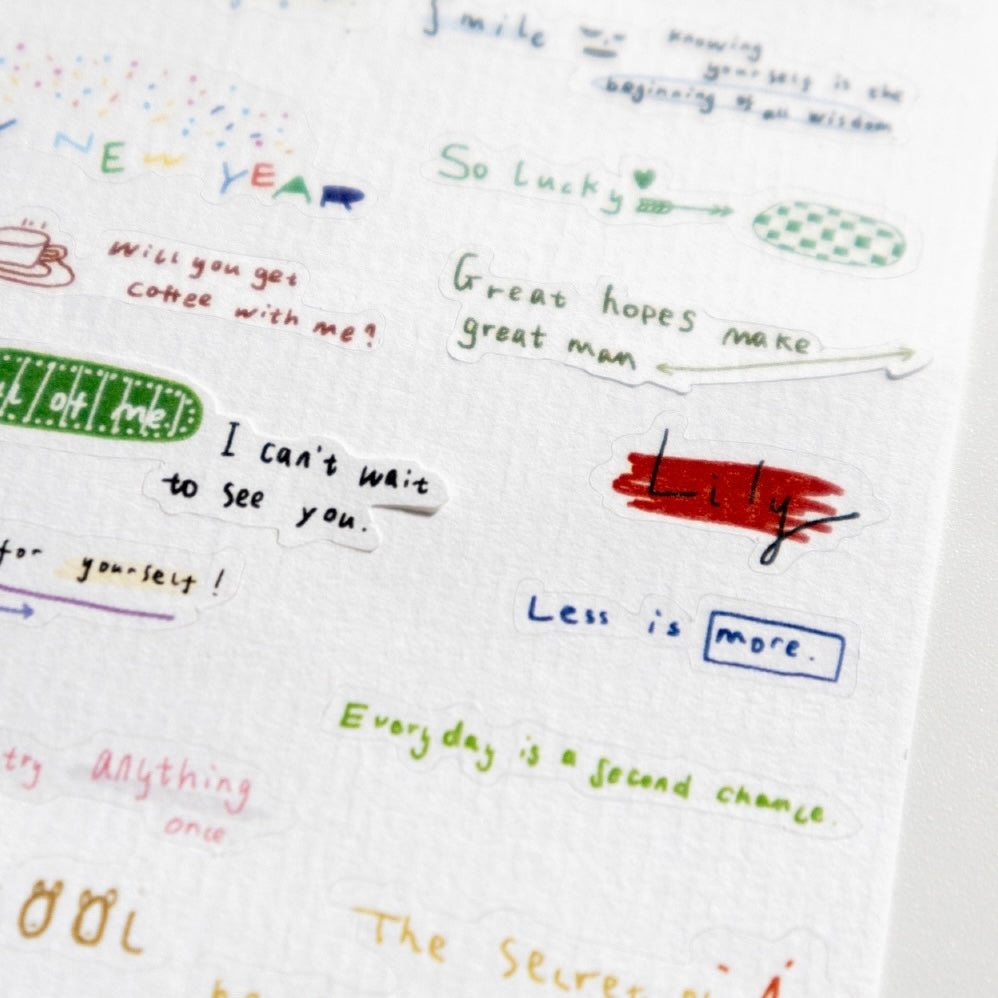 Smile
Knowing
yourself is the
beginning of all wisdom
NEW YEAR
So Lucky
Will you get
coffee with me?
Great hopes make
great man
of me
I can't wait
to see you.
Lily
for yourself!
Less is more.
Everyday is a second chance.
try anything
once
The Secret